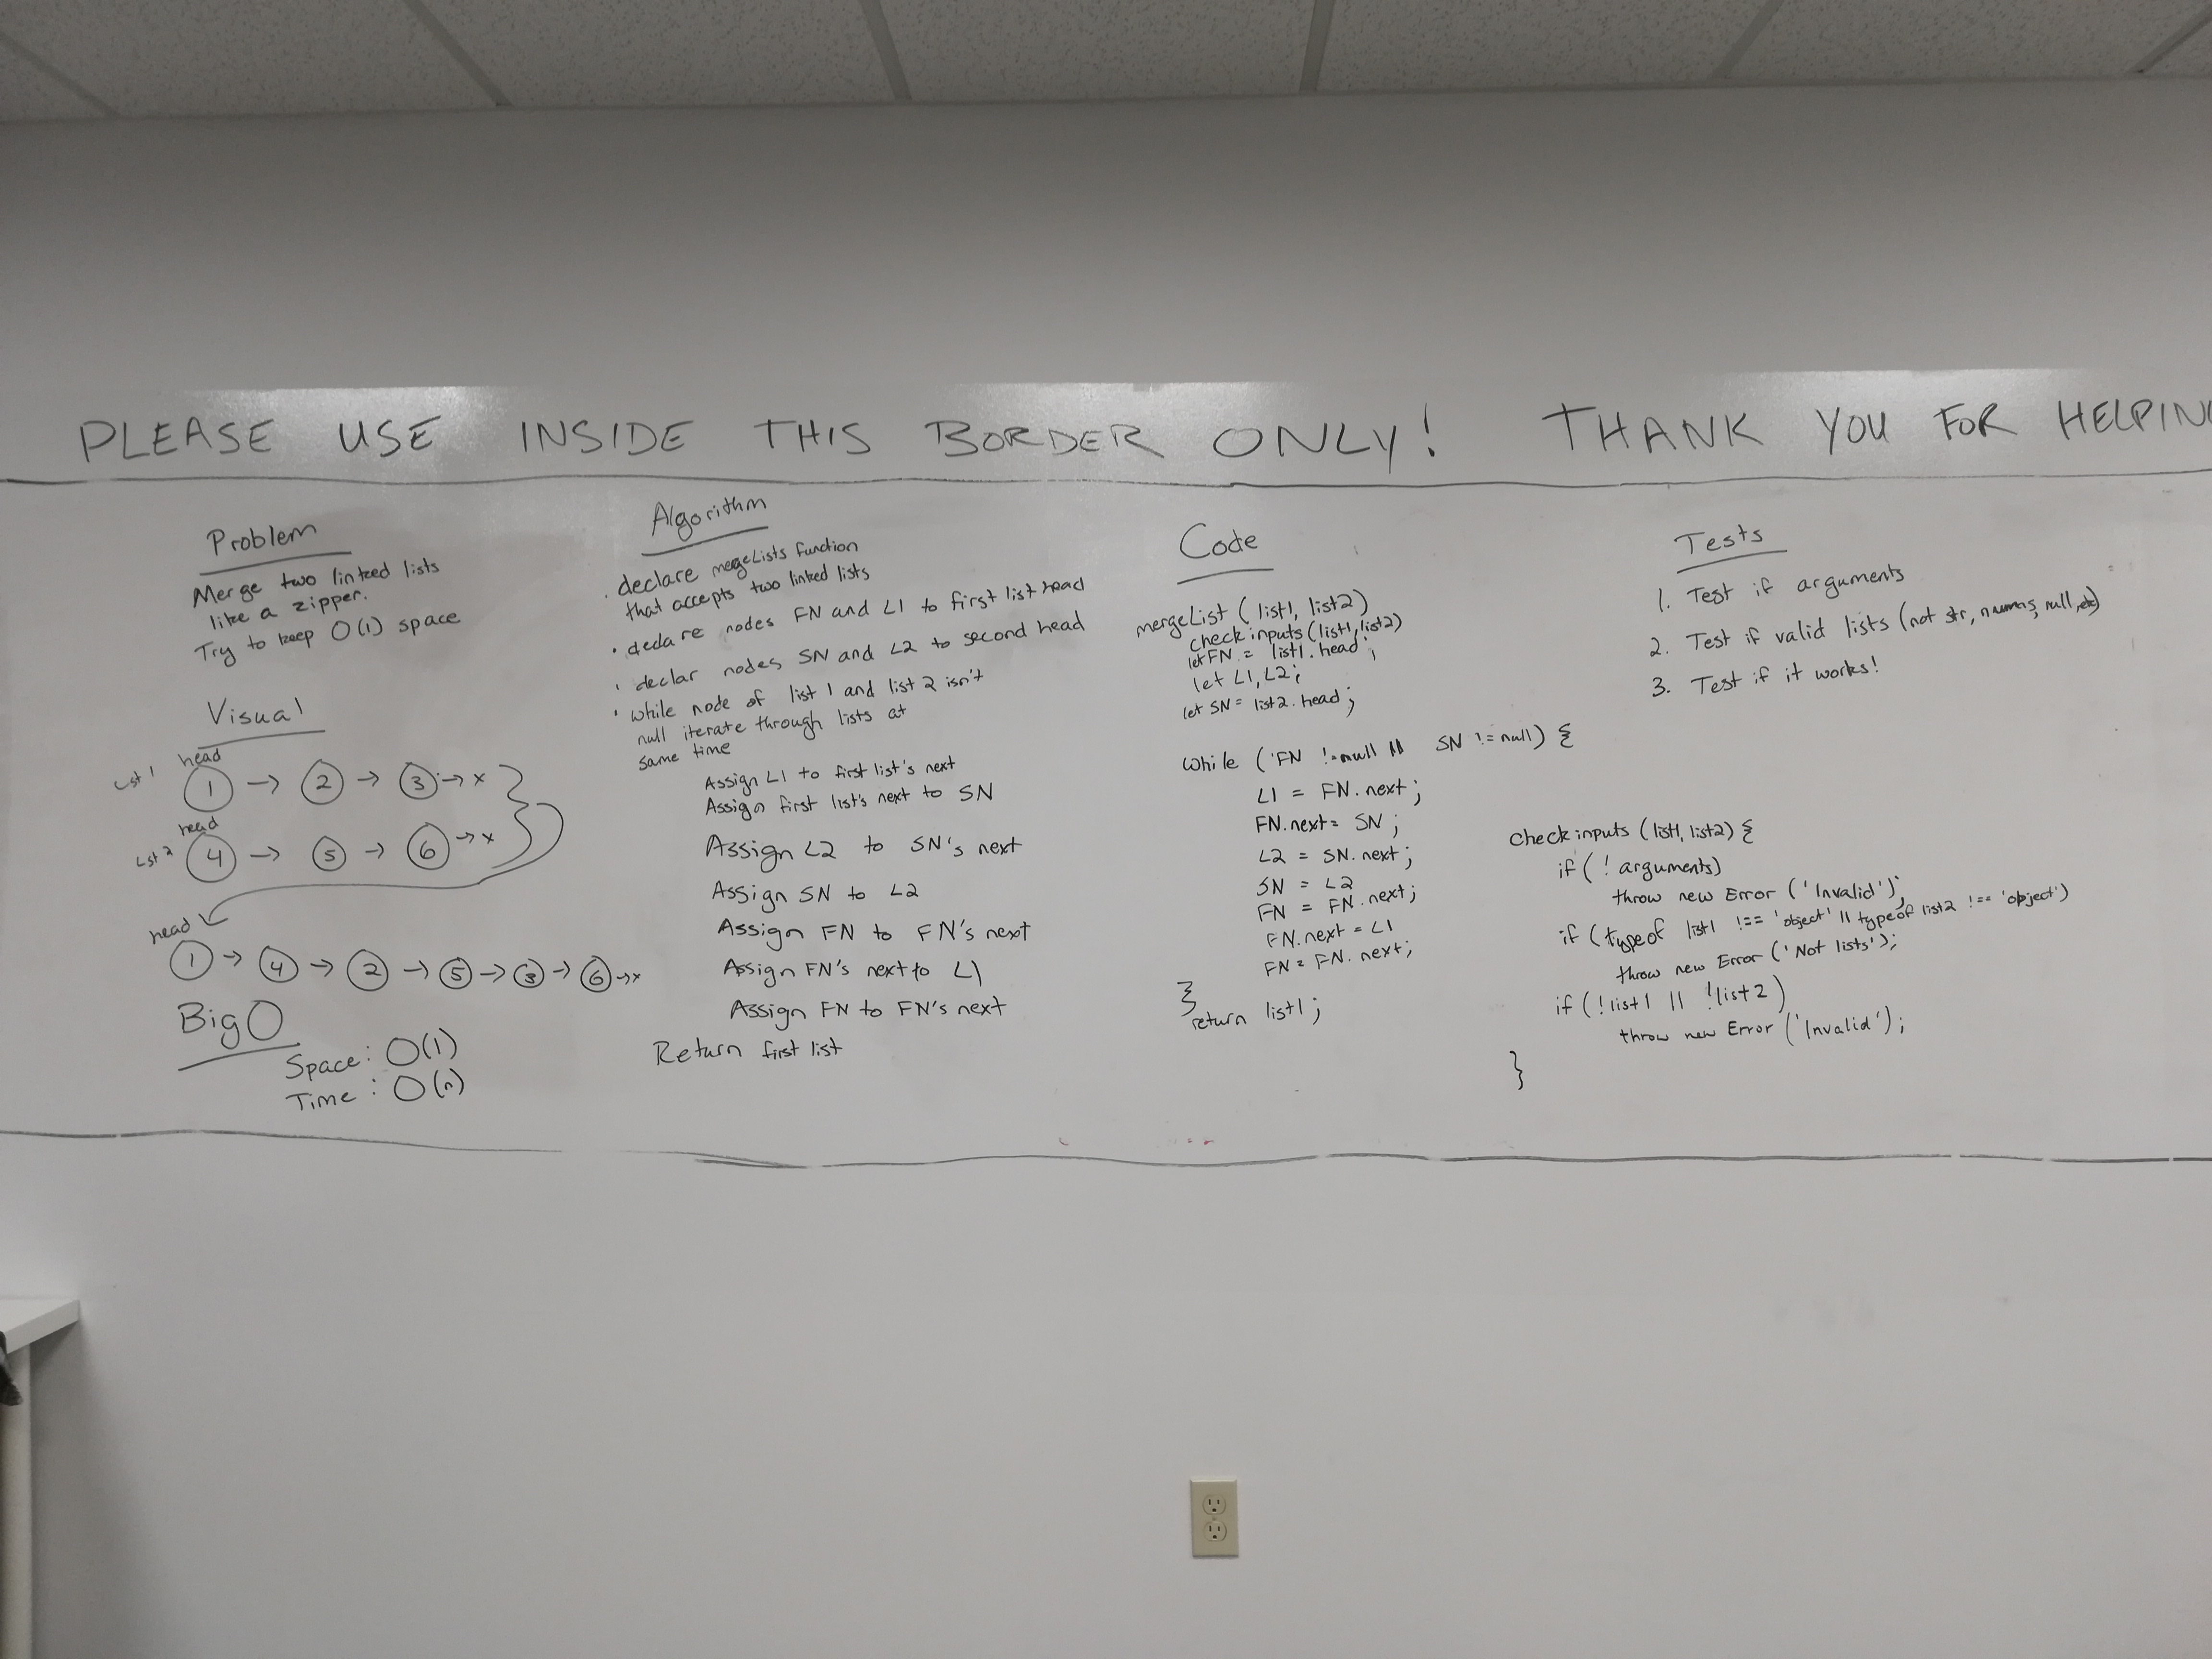 PLEASE USE INSIDE THIS BORDER ONLY! THANK YOU FOR HELPING
Problem
Merge two linked lists
like a zipper.
Try to keep O(1) space
Visual
Lst 1
head
1 → 2 → 3 → x
head
Lst 2
4 → 5 → 6 → x
head
1 → 4 → 2 → 5 → 3 → 6 → x
Big O
Space: O(1)
Time: O(n)
Algorithm
. declare mergeLists function
that accepts two linked lists
• declare nodes FN and L1 to first list head
• declar nodes SN and L2 to second head
• while node of list 1 and list 2 isn't
null iterate through lists at
same time
Assign L1 to first list's next
Assign first list's next to SN
Assign L2 to SN's next
Assign SN to L2
Assign FN to FN's next
Assign FN's next to L1
Assign FN to FN's next
Return first list
Code
mergeList (list1, list2)
checkinputs(list1, list2)
let FN = list1.head;
let L1, L2;
let SN = list2.head;
while (FN != null || SN != null) {
L1 = FN.next;
FN.next = SN;
L2 = SN.next;
SN = L2
FN = FN.next;
FN.next = L1
FN = FN.next;
}
return list1;
Tests
1. Test if arguments
2. Test if valid lists (not str, nums, null, etc)
3. Test if it works!
checkinputs (list1, list2) {
if (! arguments)
throw new Error ('Invalid');
if (typeof list1 !== 'object' || typeof list2 !== 'object')
throw new Error ('Not lists');
if (!list1 || !list2)
throw new Error ('Invalid');
}